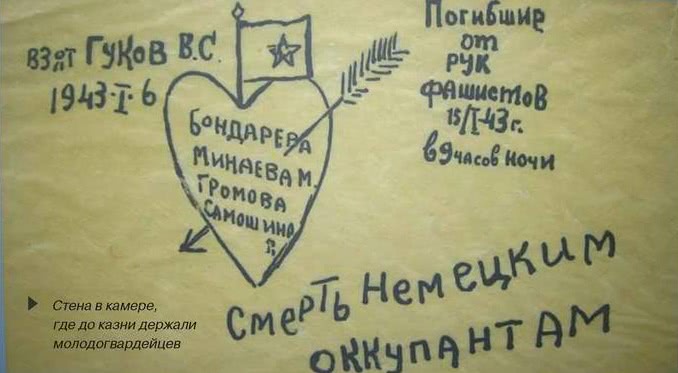 взят Гуков В.С.
1943·I·6
Бондарева
Минаева М.
Громова
Самошина
Погибшие
от
рук
фашистов
15/I-43 г.
в 9 часов ночи
Смерть немецким
оккупантам
Стена в камере,
где до казни держали
молодогвардейцев